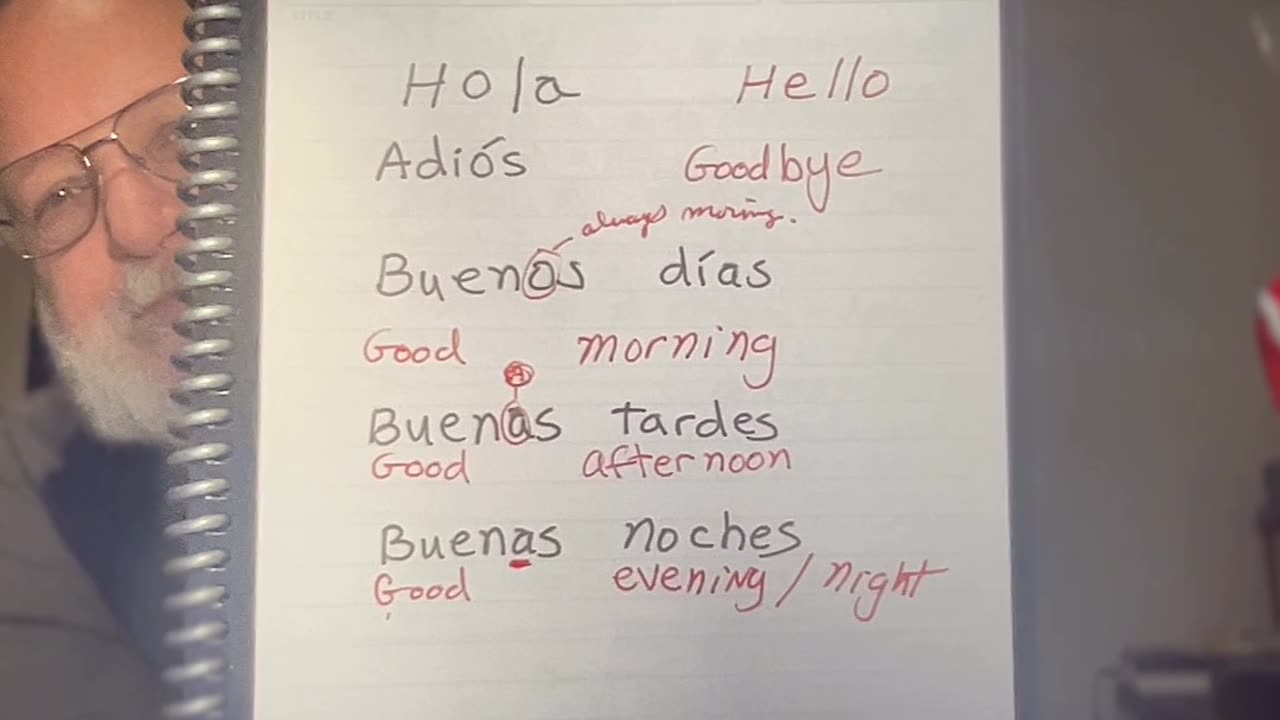 TITLE
Hola Hello
Adiós Goodbye
always moring.
Buenos días
Good morning
A
Buenas tardes
Good afternoon
Buenas noches
Good evening / night